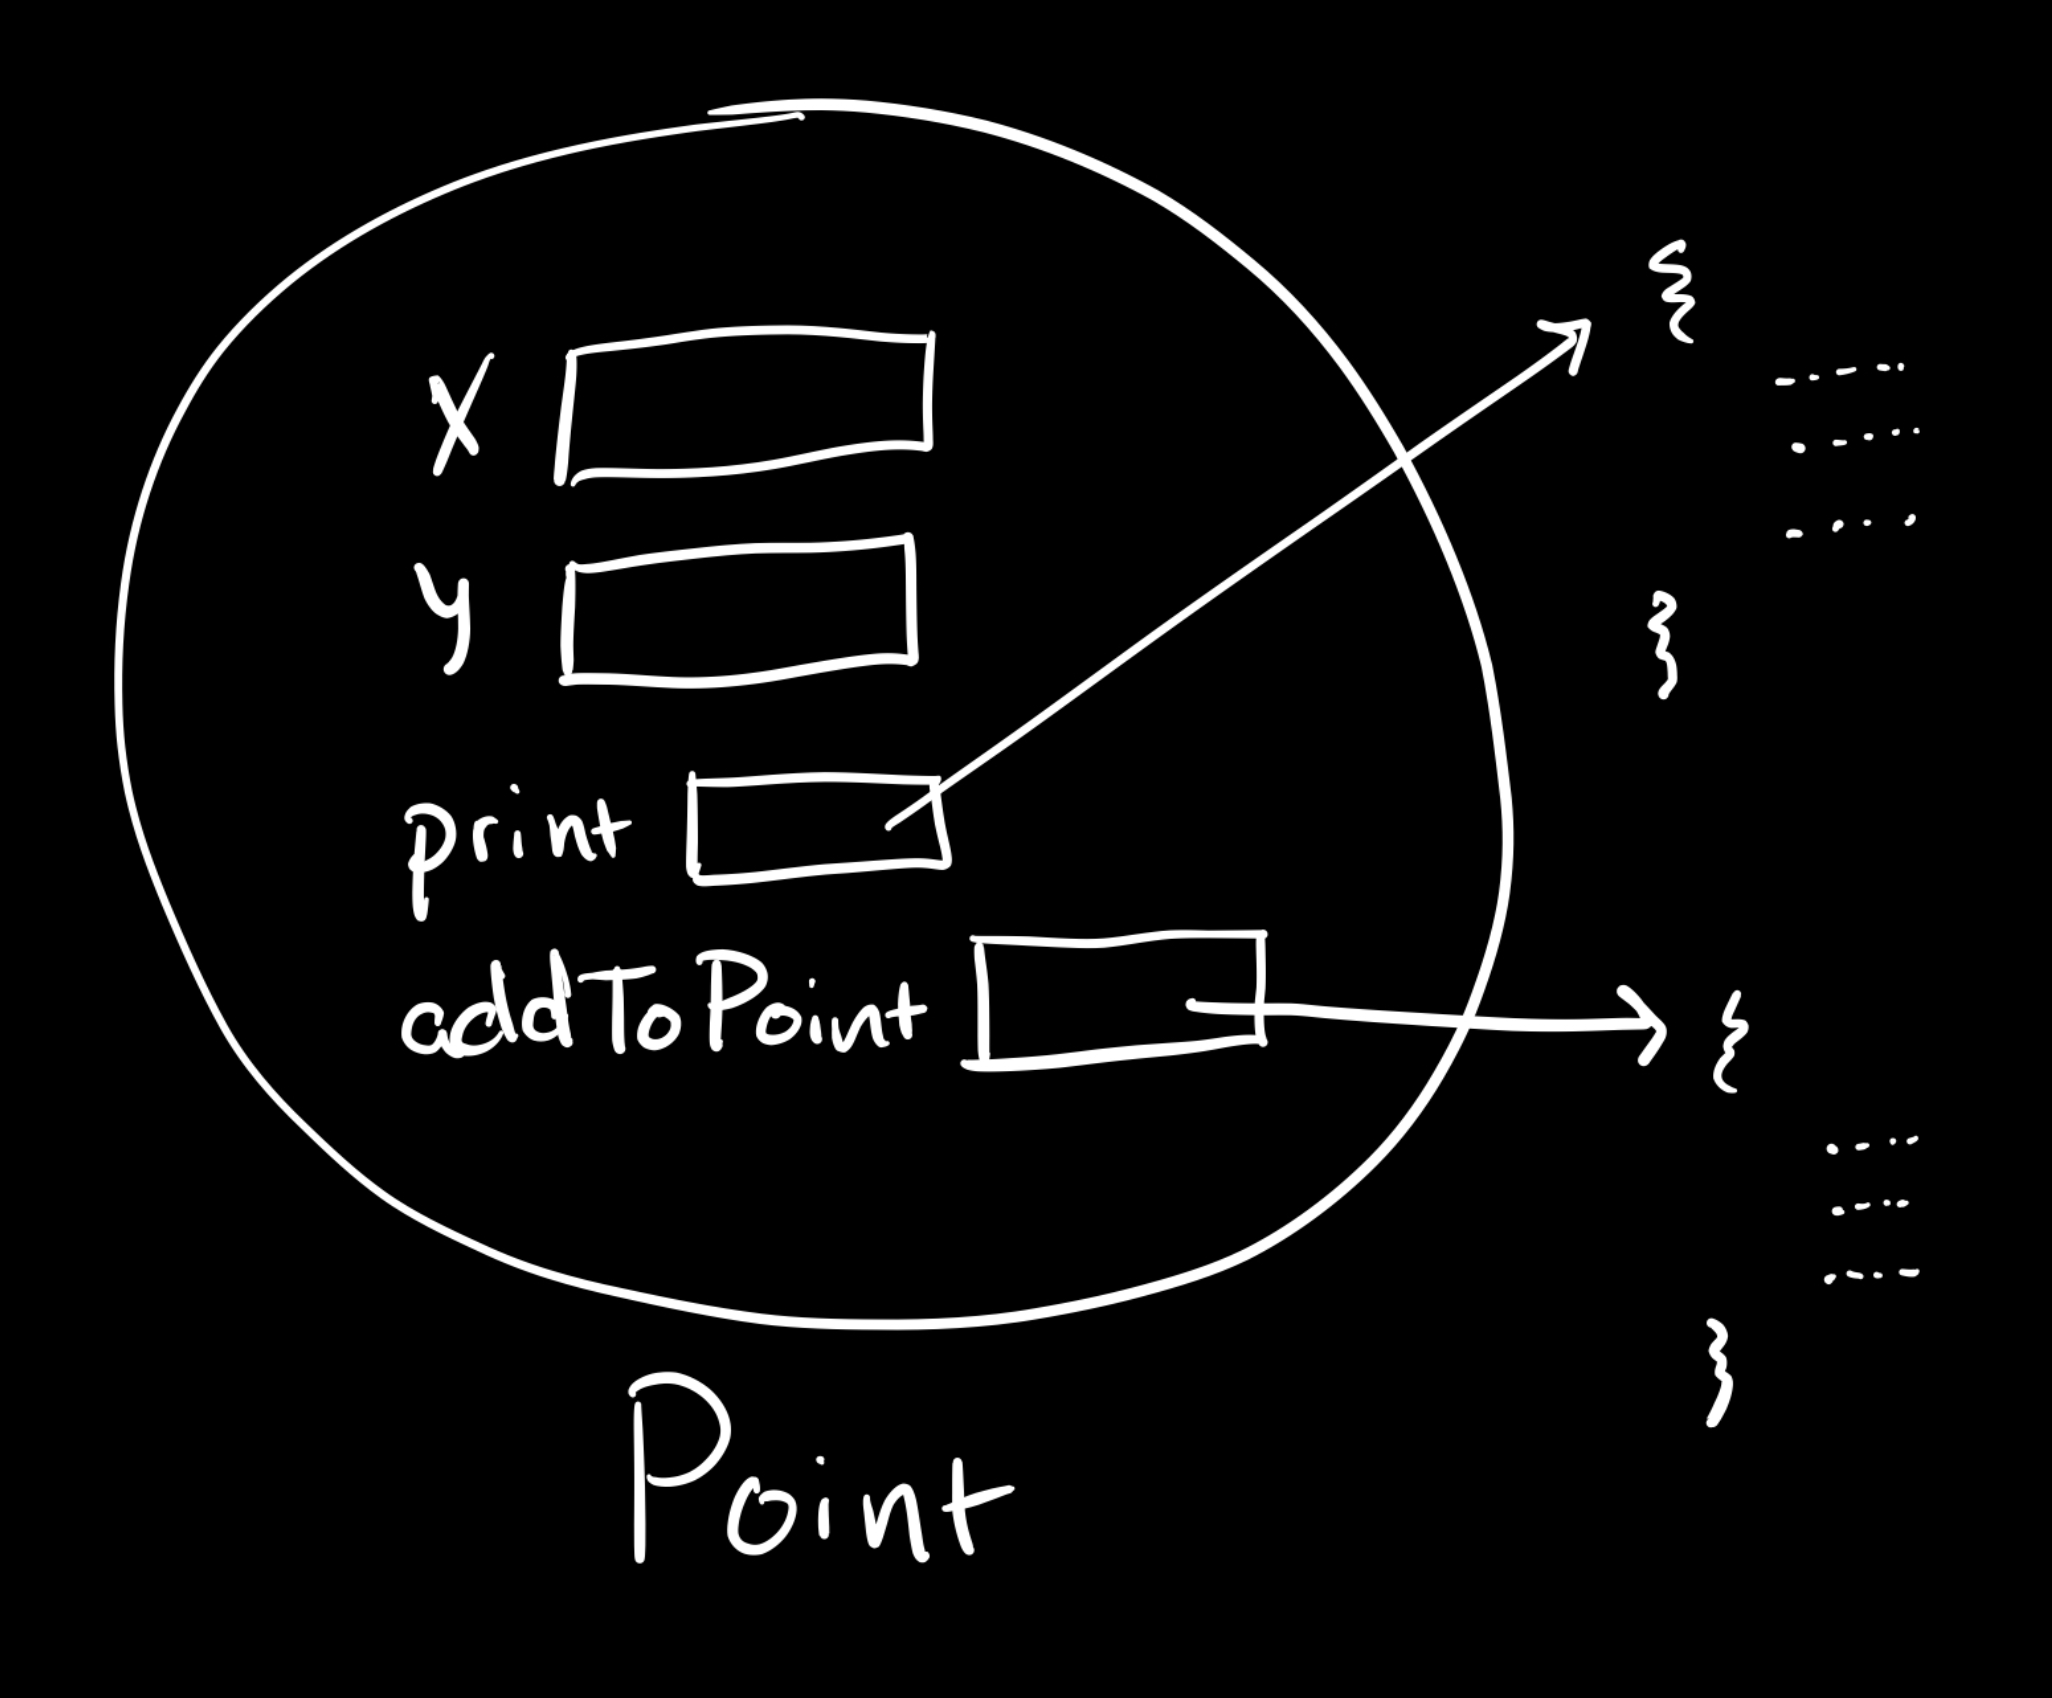 x
y
print
addToPoint
{
}
{
}
Point